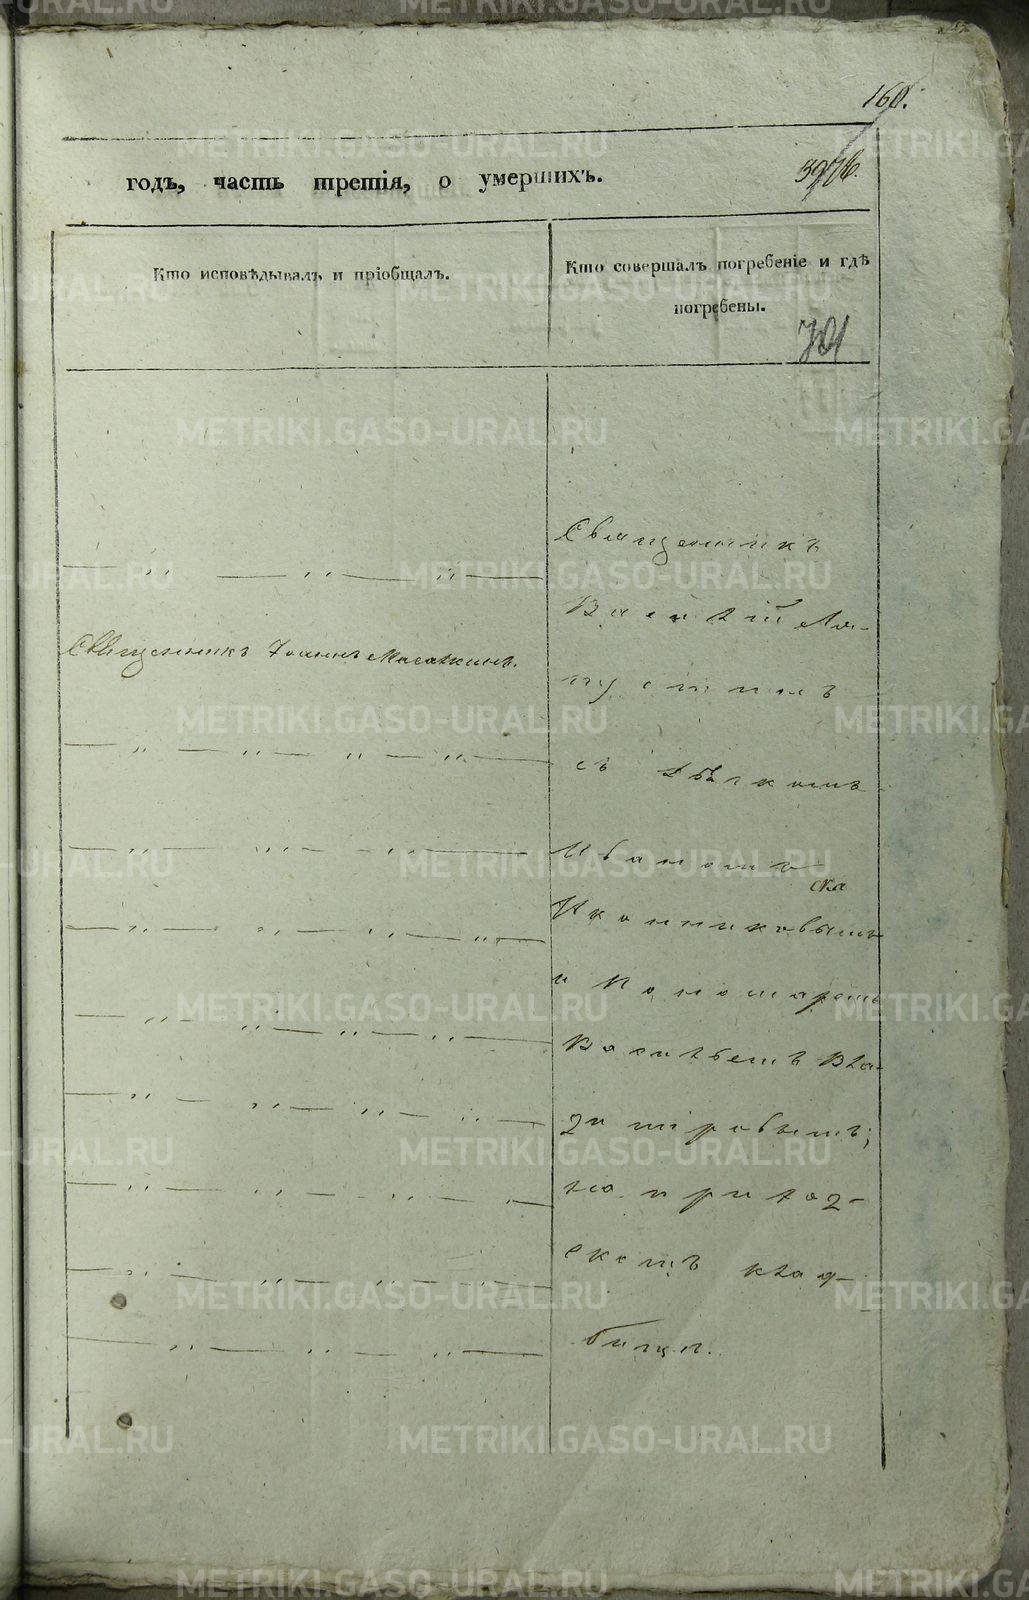 160.
годъ, часть третія, о умершихъ.
Кто исповѣдывалъ и пріобщалъ.
Кто совершалъ погребеніе и гдѣ
погребены.
701
Священникъ
Василій Ла-
Священникъ Іоаннъ
пустинъ
съ Дьякомъ
Иваномъ
ска
Иконниковымъ
и Пономаремъ
Васильемъ Вла-
диміровымъ;
на приход-
скомъ клад-
бищи.
METRIKI.GASO-URAL.RU